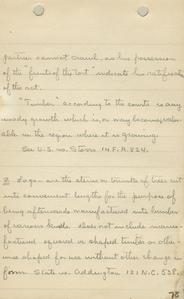 partner cannot crawl, as his possession
of the "fruits of the tort indicate his ratification
of the act.
"Timber" according to the courts is any
woody growth which is, or may become, valu-
able in the region where it is growing.
See U.S. vs. Storrs 14 F.R. 824.
Logs are the stems or trunks of trees cut
into convenient lengths for the purpose of
being afterwards manufactured into lumber
of various kinds. does not include manu-
factured squared or shaped timber or other-
wise shaped for use without other change in
form State vs. Addington 121 N.C. 538.